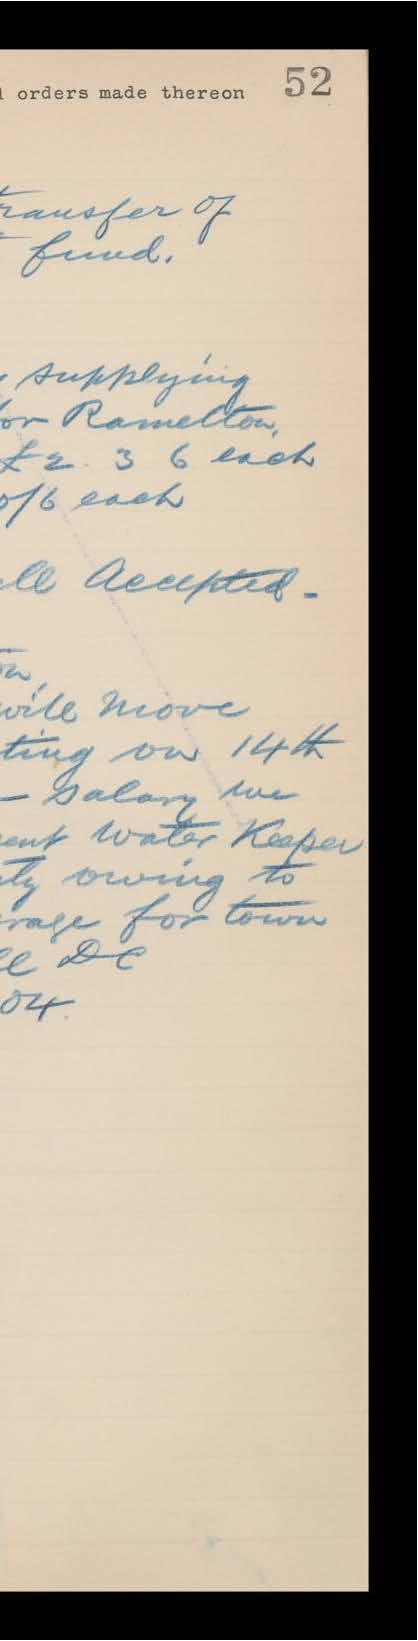 orders made thereon 52
transfer of
fund.
supplying
for Ramelton,
£2. 3 6 each
0/6 each
Accepted -
will move
ting on 14th
- Salary we
ent Water Keeper
ty owing to
erage for town
DC
04.